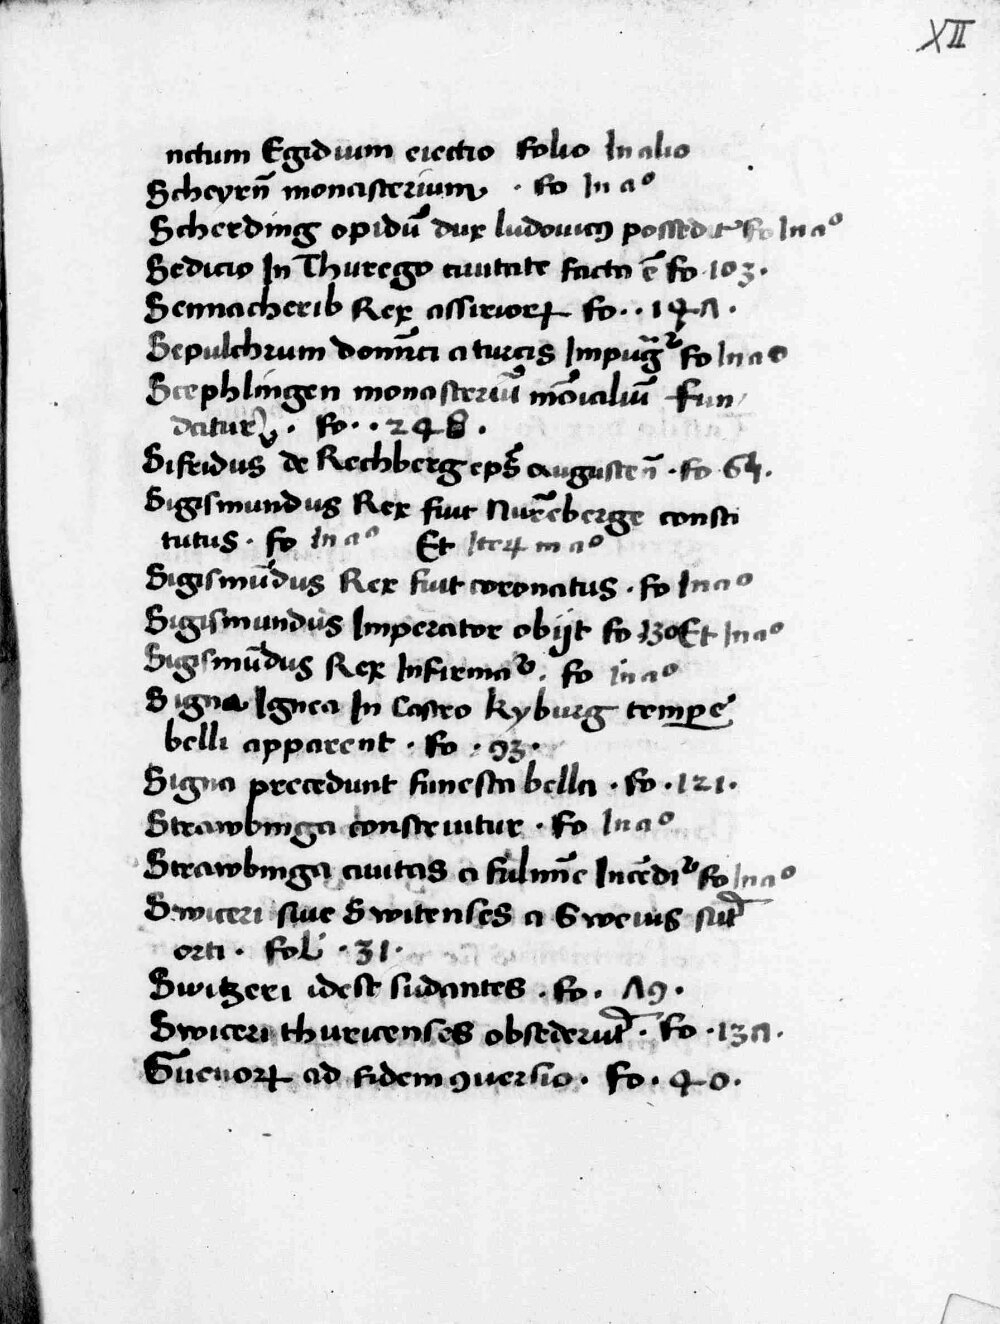 XII
nctum Egidium eiectio folio In alio
Scheyrn̄ monasterium · fo In aº
Scherding opidū dux ludouicꝰ possedit fo In aº
Sedicio In Thurego ciuitate facta ē fo 103.
Sennacherib Rex assirioꝝ fo · · 14Λ ·
Sepulchrum domīci a turcis Impūgr̄ fo In aº
Stephlingen monasteriū mōialiū fun
datur · fo · · 248 ·
Sifridus de Rechberg ep̄s augusten̄ · fo
Sigismundus Rex fiut Nurēberge consti
tutus · fo In aº Et Iteꝝ in aº
Sigismūdus Rex fuit coronatus · fo In aº
Sigismundus Imperator obijt fo 130 Et In aº
Sigismūdus Rex Infirmar̄ · fo In aº
Signa Ignea In Castro kyburg tempe
belli apparent · fo · 93 ·
Signa precedunt funesta bella · fo · 121 ·
Strawbinga construitur · fo In aº
Strawbinga ciuitas a fulmīe Incēdir̄ fo In aº
Swiceri siue Switenses a Sweuis sūt
orti · fol · 31 ·
Switzeri idest sudantes · fo · Λ9 ·
Swiceri thuricenses obsederūt · fo · 13Λ ·
Sueuoꝝ ad fidem ꝯuersio · fo · 40 ·